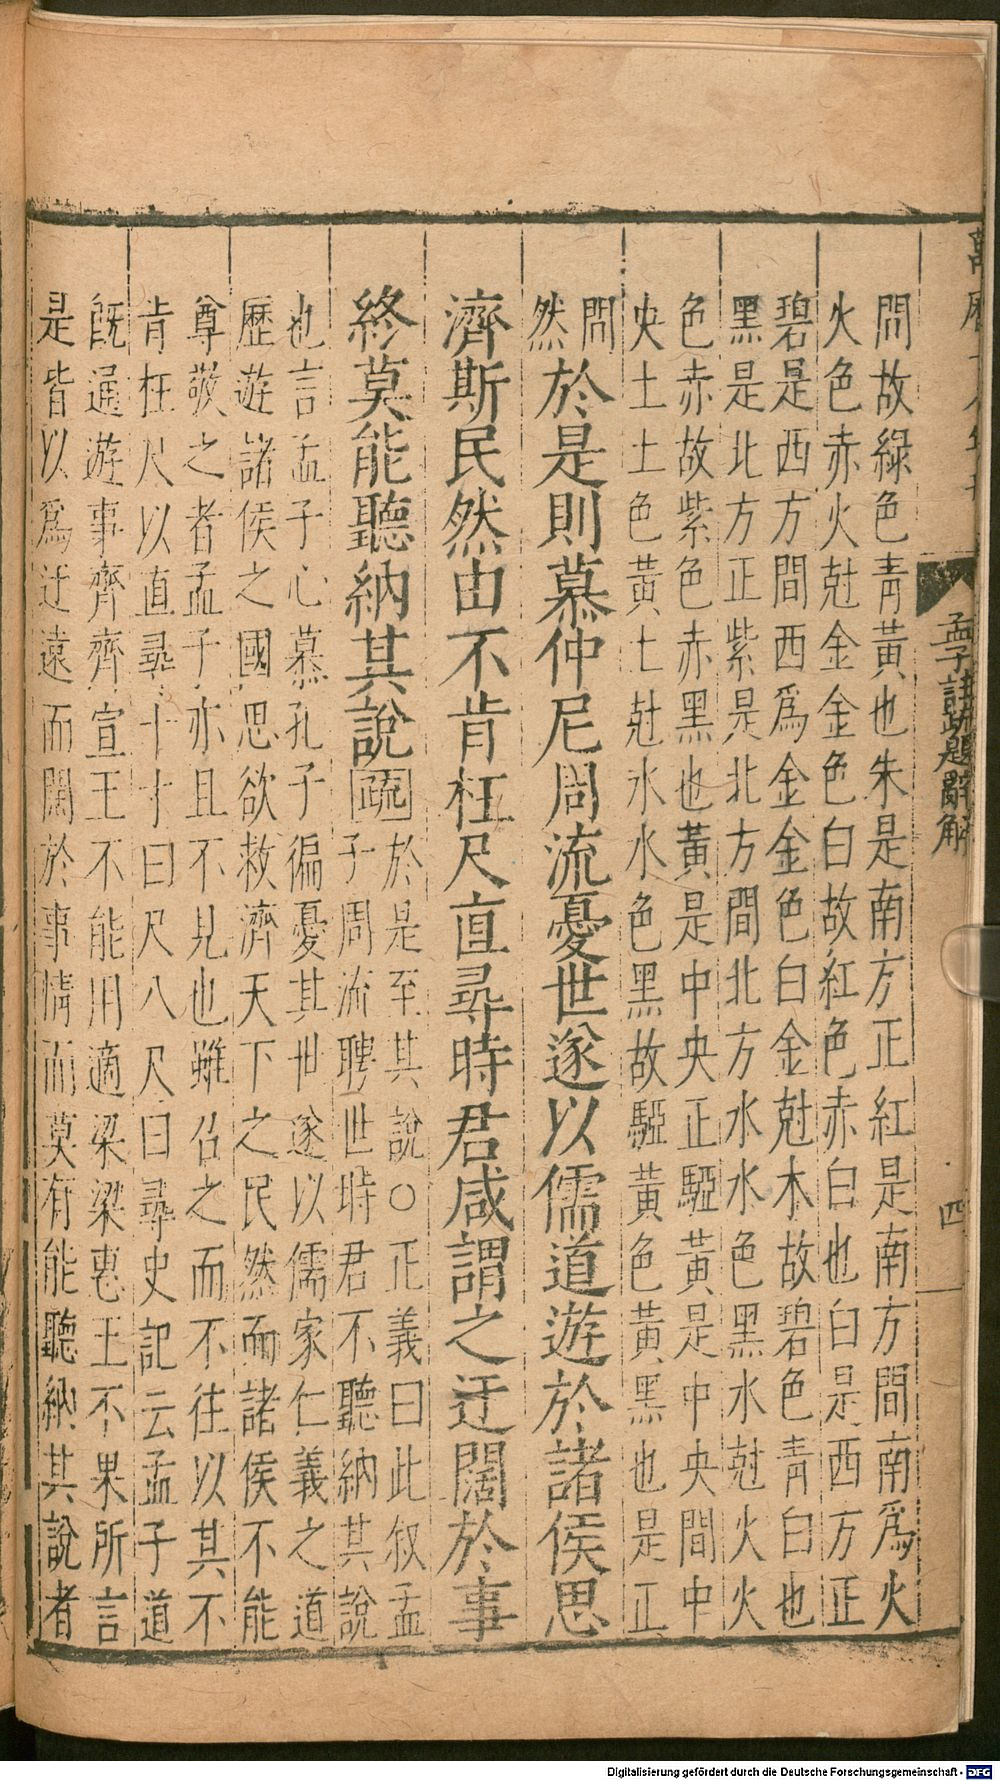 萬曆十八年刊
孟子註疏題辭解
四
問故綠色青黃也朱是南方正紅是南方間南爲火
火色赤火尅金金色白故紅色赤白也白是西方正
碧是西方間西爲金金色白金尅木故碧色青白也
黑是北方正紫是北方間北方水水色黑水尅火火
色赤故紫色赤黑也黃是中央正黃是中央間中
央土土色黃土尅水水色黑故黃色黃黑也是正
問然於是則慕仲尼周流憂世遂以儒道遊於諸侯思
濟斯民然由不肯枉尺直尋時君咸謂之迂闊於事
終莫能聽納其說疏於是至其說○正義曰此叙孟
子周流聘世時君不聽納其說
也言孟子心慕孔子徧憂其世遂以儒家仁義之道
歷遊諸侯之國思欲救濟天下之民然而諸侯不能
尊敬之者孟子亦且不見也雖召之而不往以其不
肯枉尺以直尋十寸曰尺八尺曰尋史記云孟子道
旣通遊事齊齊宣王不能用適梁梁惠王不果所言
是皆以爲迂遠而闊於事情而莫有能聽納其說者
Digitalisierung gefördert durch die Deutsche Forschungsgemeinschaft - DFG